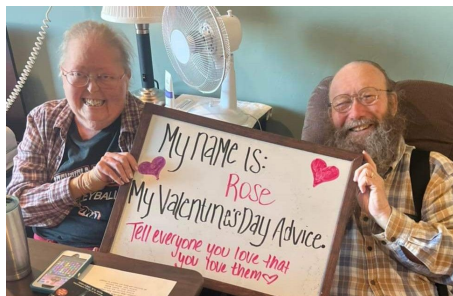 My name is:
Rose
My Valentine's Day Advice.
Tell everyone you love that
you love them